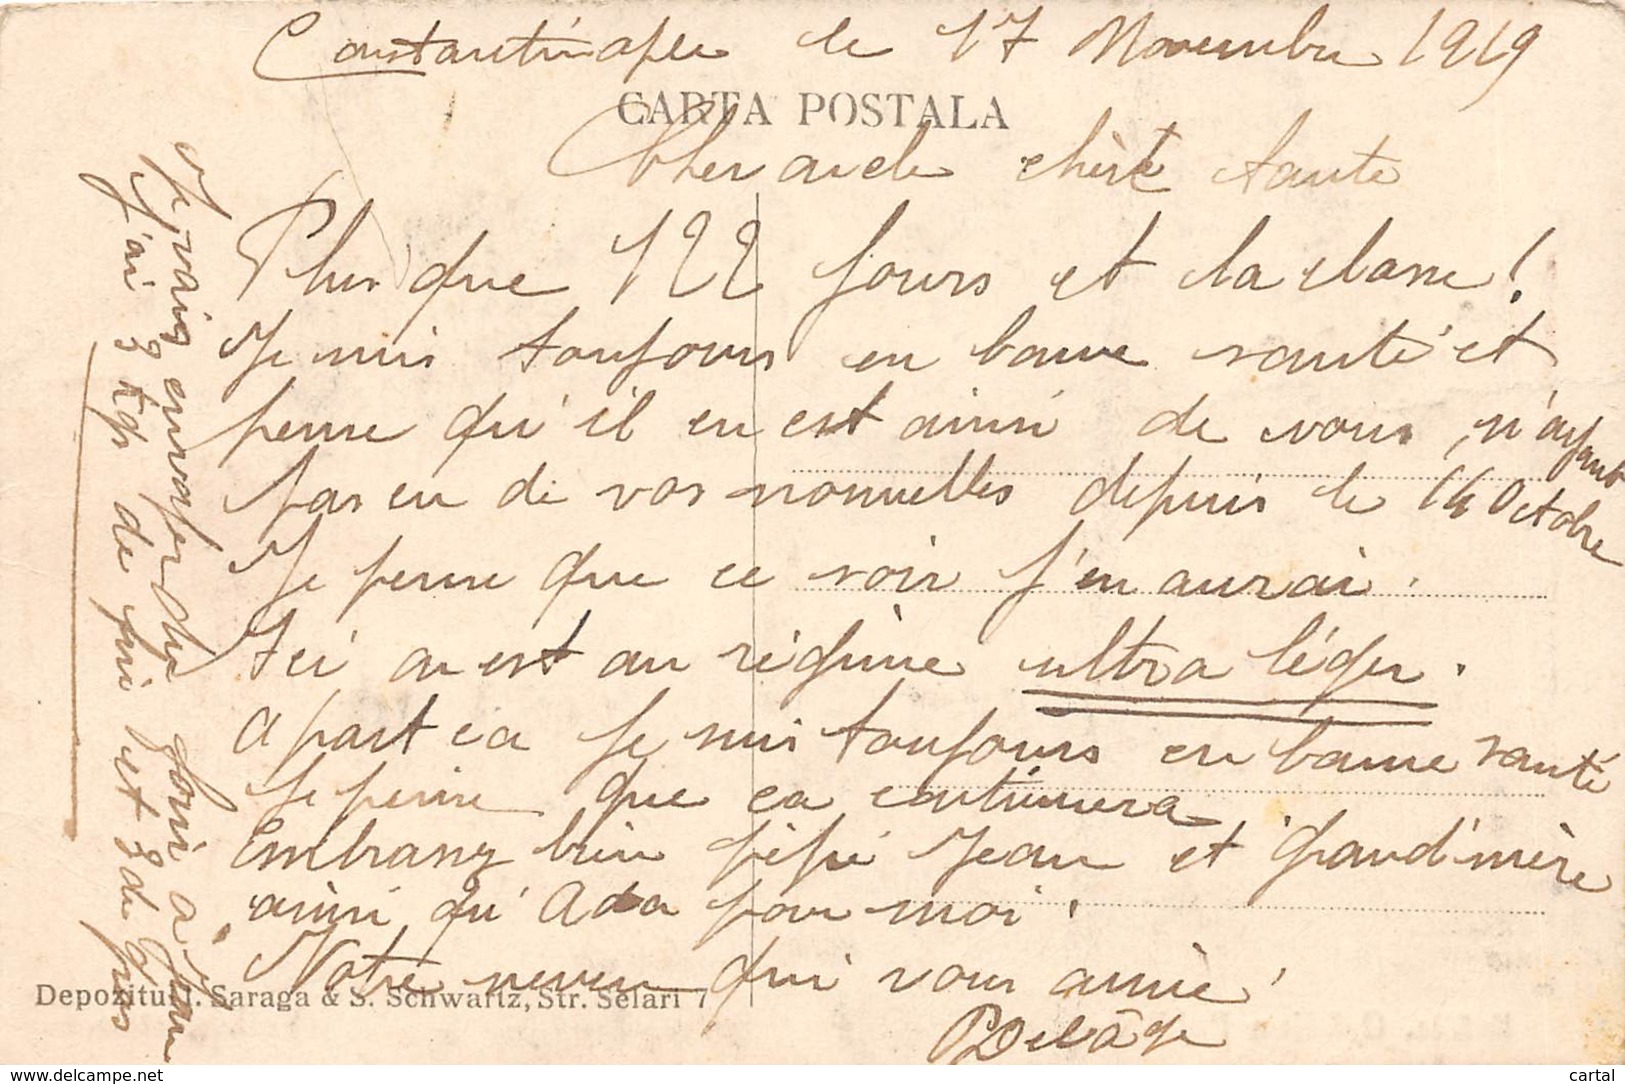 Constantinople le 17 Novembre 1919
CARTA POSTALA
Cher oncle chère tante
Plus que 122 jours et la classe !
Je suis toujours en bonne santé et
pense qu'il en est ainsi de vous, n'ayant
pas eu de vos nouvelles depuis le 14 Octobre
Je pense que ce soir j'en aurai.
Ici on est au régime ultra léger.
A part ca je suis toujours en bonne santé
Je pense que ca continuera
Embrassez bien pépé Jean et Grand'mère
ainsi qu'Ada pour moi.
Votre neveu qui vous aime
PDelâge
Je vais envoyer du fini à Jean
J'ai 3 kgs de fin et 3 de gros
Depozitul I. Saraga & S. Schwartz, Str. Selari 7
www.delcampe.net
cartal